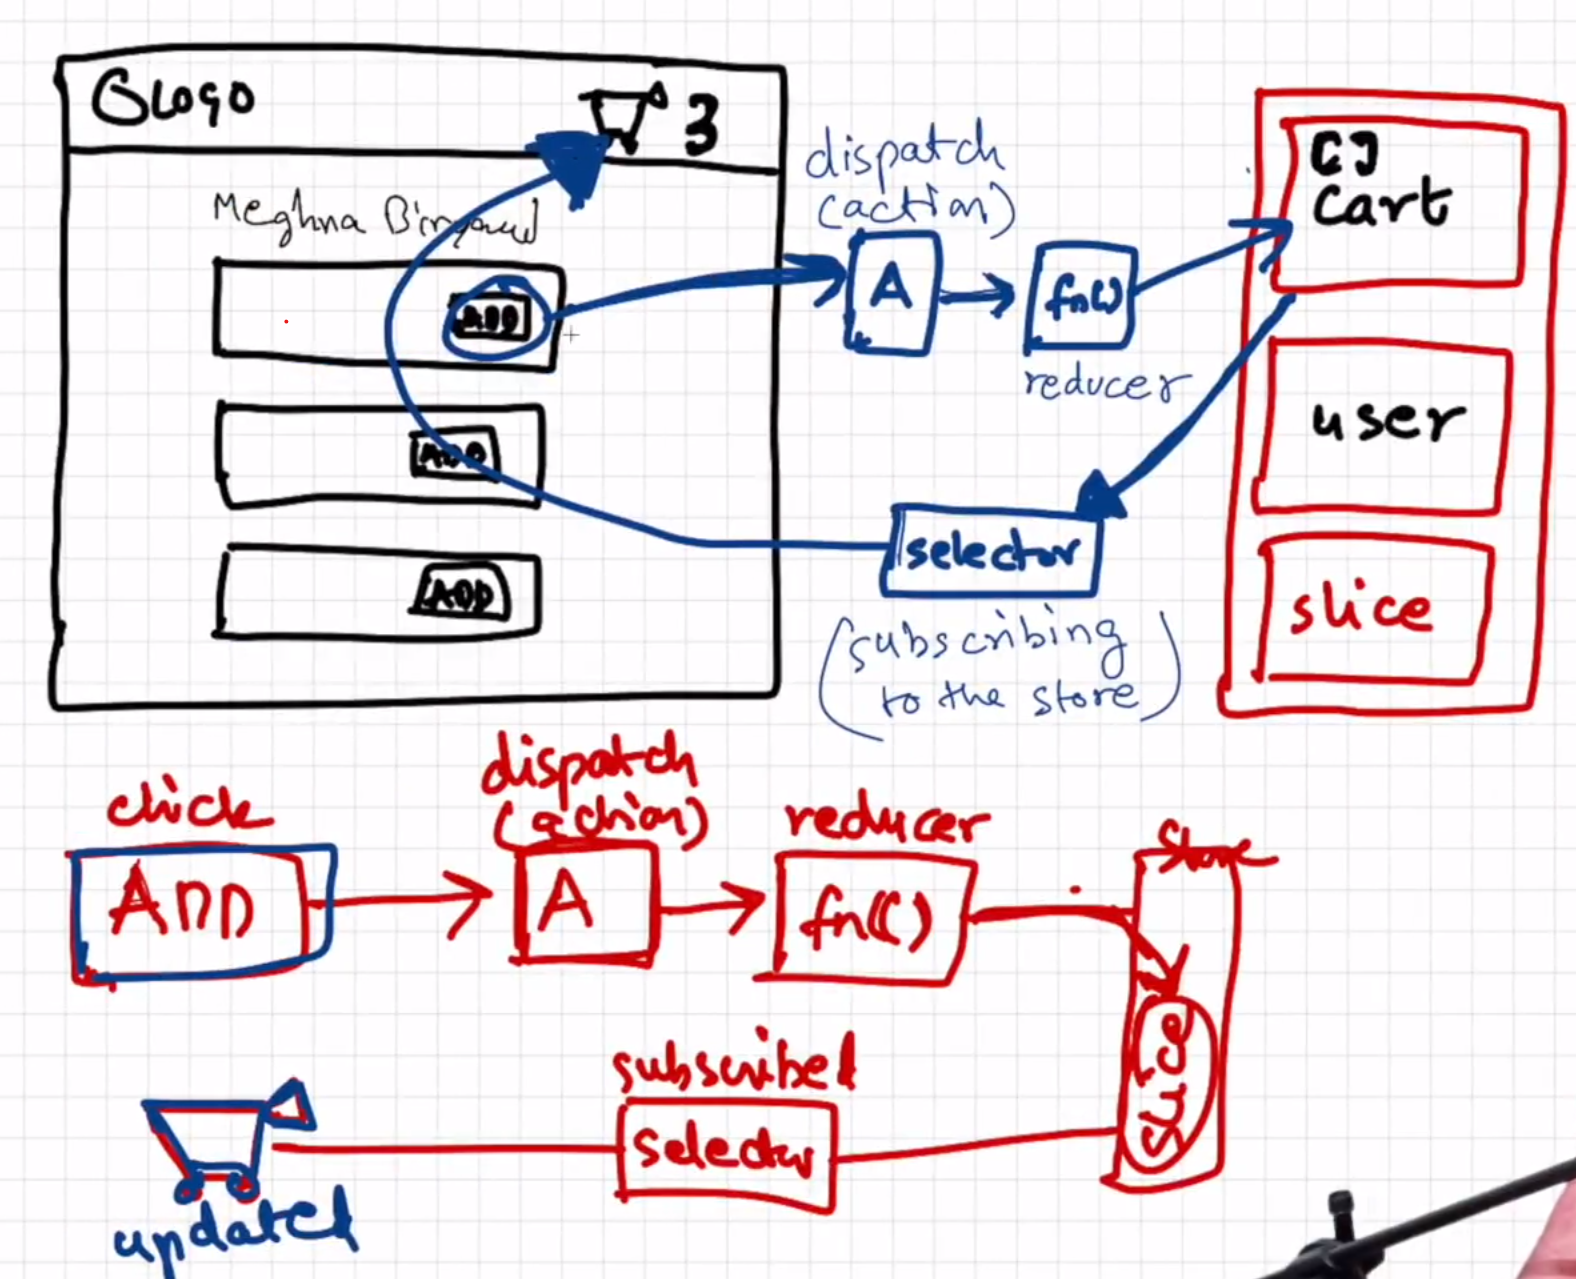 Logo
3
Meghna Biryani
ADD
ADD
ADD
dispatch
(action)
A
fn()
reducer
selector
(subscribing
to the store)
[]
Cart
user
slice
click
ADD
dispatch
(action)
A
reducer
fn()
Store
slice
subscribed
selector
updated